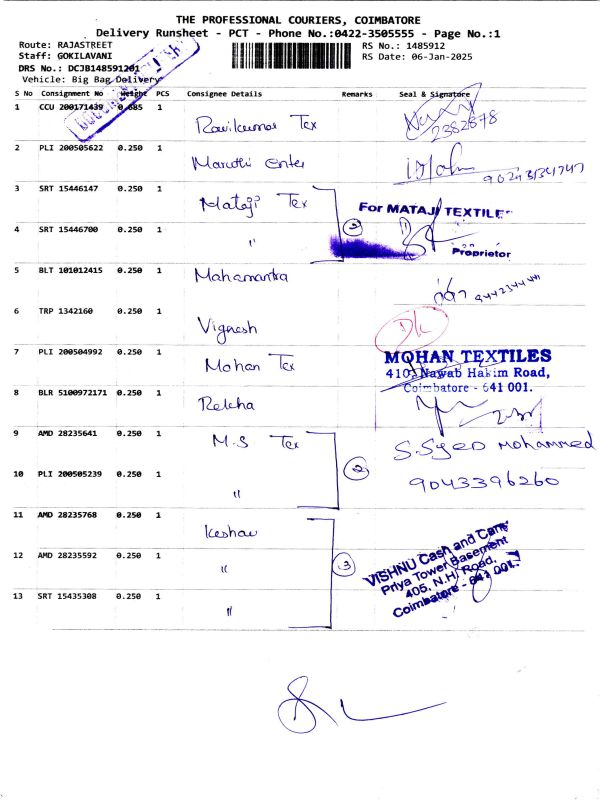 THE PROFESSIONAL COURIERS, COIMBATORE
Delivery Runsheet - PCT - Phone No.:0422-3505555 - Page No.:1
Route: RAJASTREET
RS No.: 1485912
Staff: GOKILAVANI
RS Date: 06-Jan-2025
DRS No.: DCJB148591201
Vehicle: Big Bag Delivery
S No Consignment No Weight PCS Consignee Details Remarks Seal & Signature
1 CCU 200171439 0.685 1 Ravikumar Tex
2382878
2 PLI 200505622 0.250 1 Maruthi Enter
3 SRT 15446147 0.250 1 Mataji Tex
For MATAJI TEXTILE
4 SRT 15446700 0.250 1 "
2
Proprietor
5 BLT 101012415 0.250 1 Mahamantra
6 TRP 1342160 0.250 1 Vignesh
7 PLI 200504992 0.250 1 Mohan Tex
MOHAN TEXTILES
410, Nawab Hakim Road,
Coimbatore - 641 001.
8 BLR 5100972171 0.250 1 Rekha
9 AMD 28235641 0.250 1 M.S Tex
S.Syed Mohammed
10 PLI 200505239 0.250 1 "
2
9043396260
11 AMD 28235768 0.250 1 Keshav
12 AMD 28235592 0.250 1 "
3
VISHNU Cash and Carry
Priya Tower Basement
405, N.H. Road,
Coimbatore - 641 001.
13 SRT 15435308 0.250 1 "